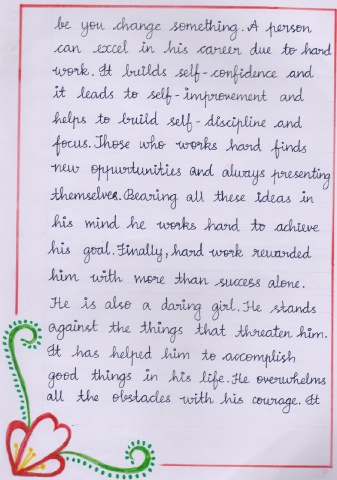 be you change something. A person
can excel in his career due to hard
work. It builds self-confidence and
it leads to self-improvement and
helps to build self-discipline and
focus. Those who works hard finds
new oppurtunities and always presenting
themselves. Bearing all these ideas in
his mind he works hard to achieve
his goal. Finally, hard work rewarded
him with more than success alone.
He is also a daring girl. He stands
against the things that threaten him.
It has helped him to accomplish
good things in his life. He overwhelms
all the obstacles with his courage. It